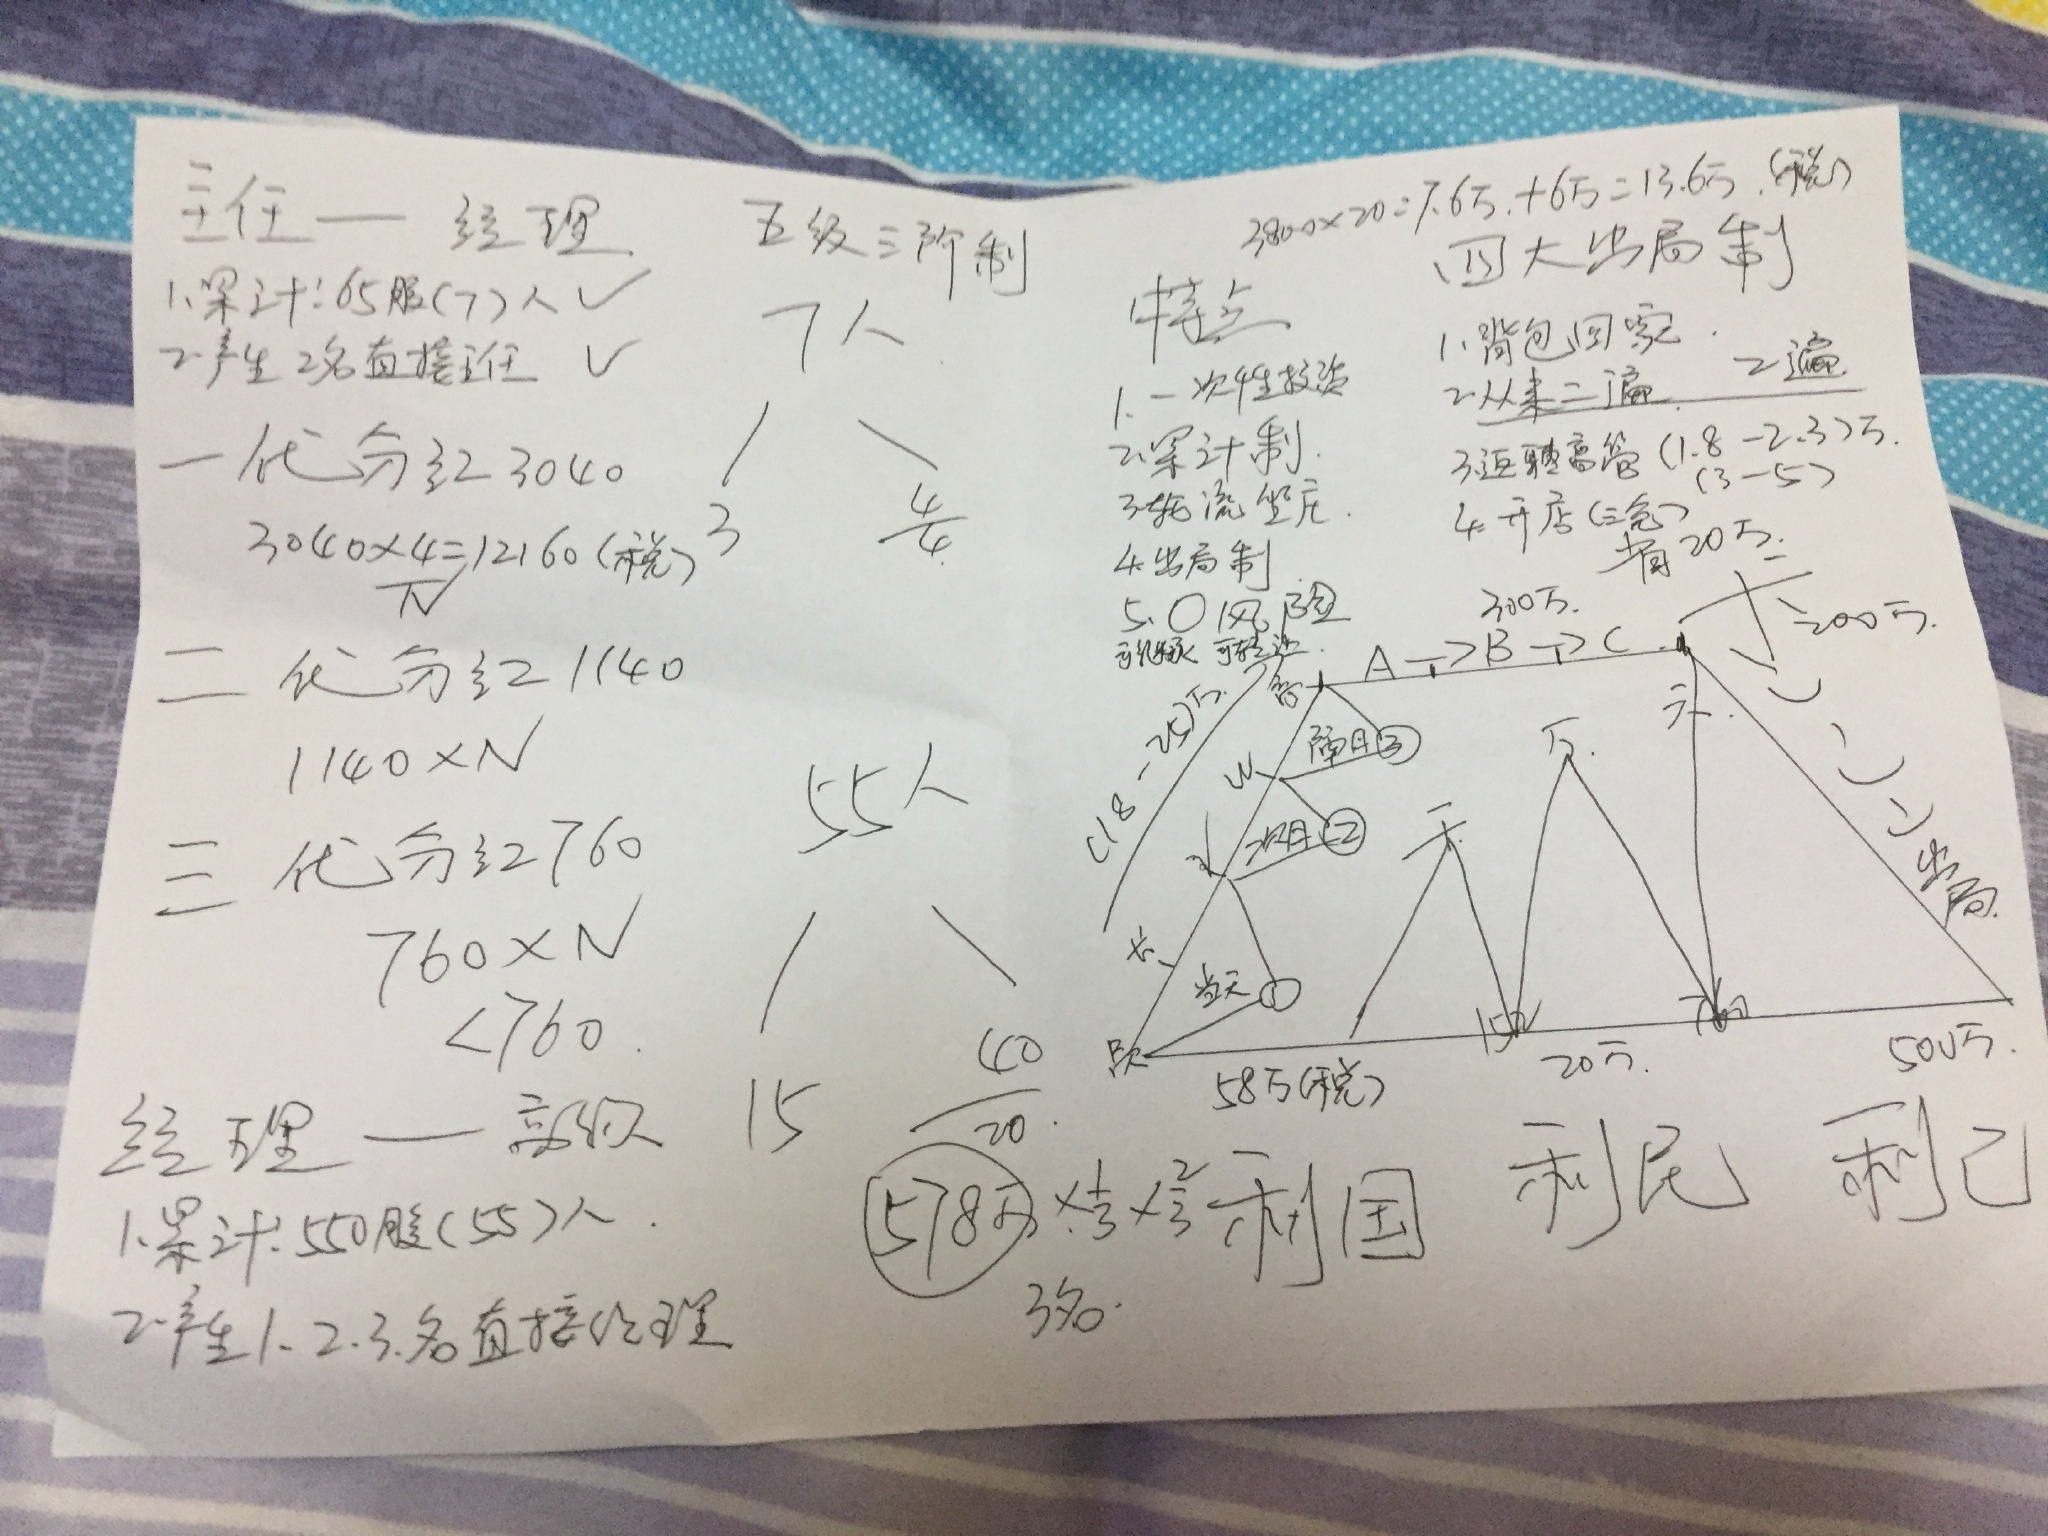 主任 — 经理
1.累计:65股(7)人 ✓
2.产生2名直接主任 ✓
一代分红3040
3040×4=12160(税)
N
二代分红1140
1140×N
三代分红760
760×N
<760.
经理 — 高级
1.累计:550股(55)人.
2.产生1.2.3.名直接经理
五级三阶制
7人
3
4
4.
55人
15
40
20.
578万×
3名.
3800×20=7.6万.+6万=13.6万.(税)
四大出局制
1.背包回家.
2.从来二遍. 2遍
3.返聘高管(1.8-2.3)万.
(3-5)
4.开店(三免)
省20万.
特点
1.一次性投资
2.累计制.
3.轮流坐庄.
4.出局制
5.0风险
300万.
A→B→C
200万.
(18-25)万
隔月③
次月②
当天①
千
万.
出局.
58万(税)
20万.
500万.
利国 利民 利己